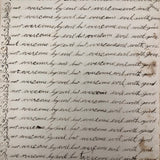 not overcome by evil but overcome evil with
not overcome by evil but overcome evil with good
not overcome by evil but overcome evil with good
not overcome by evil but overcome evil with good
not overcome by evil but overcome evil with good
not overcome by evil but overcome evil with good
not overcome by evil but overcome evil with good
not overcome by evil but overcome evil with good
not overcome by evil but overcome evil with good
not overcome by evil but overcome evil with
not overcome by evil but overcome evil with
overcome by evil but